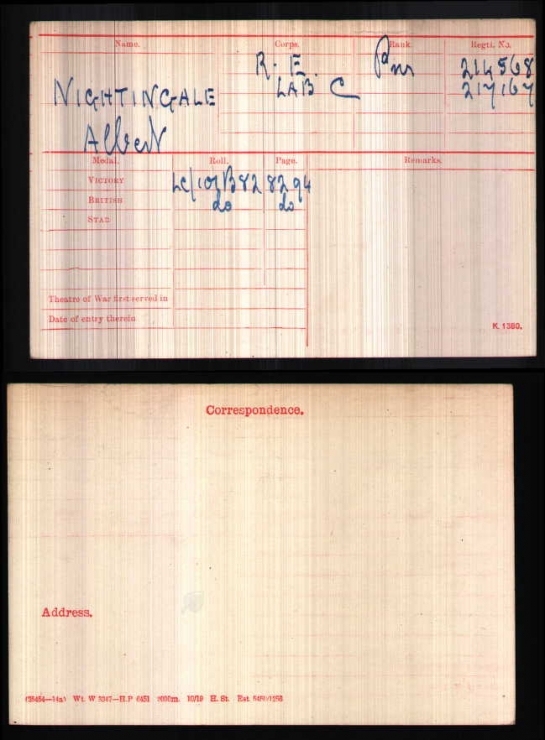 Name. Corps. Rank. Regtl. No.
R. E. Pnr 214568
NIGHTINGALE LAB C 217167
Albert
Medal. Roll. Page. Remarks.
VICTORY LC/107B82 8294
BRITISH do do
STAR
Theatre of War first served in
Date of entry therein
K. 1380.
Correspondence.
Address.
Wt. W 5347—H.P 10/19 H. St.